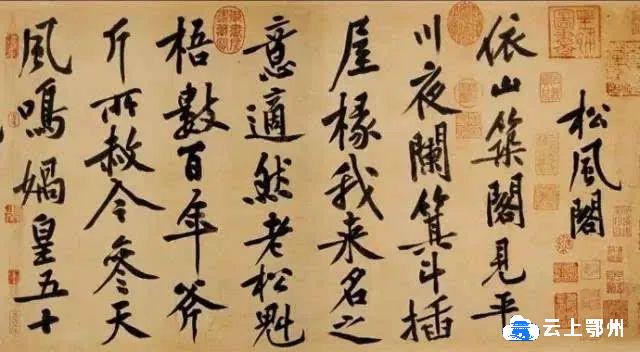 松風閣
依山築閣見平
川夜闌箕斗插
屋椽我來名之
意適然老松魁
梧數百年斧
斤所赦今參天
風鳴媧皇五十
云上鄂州